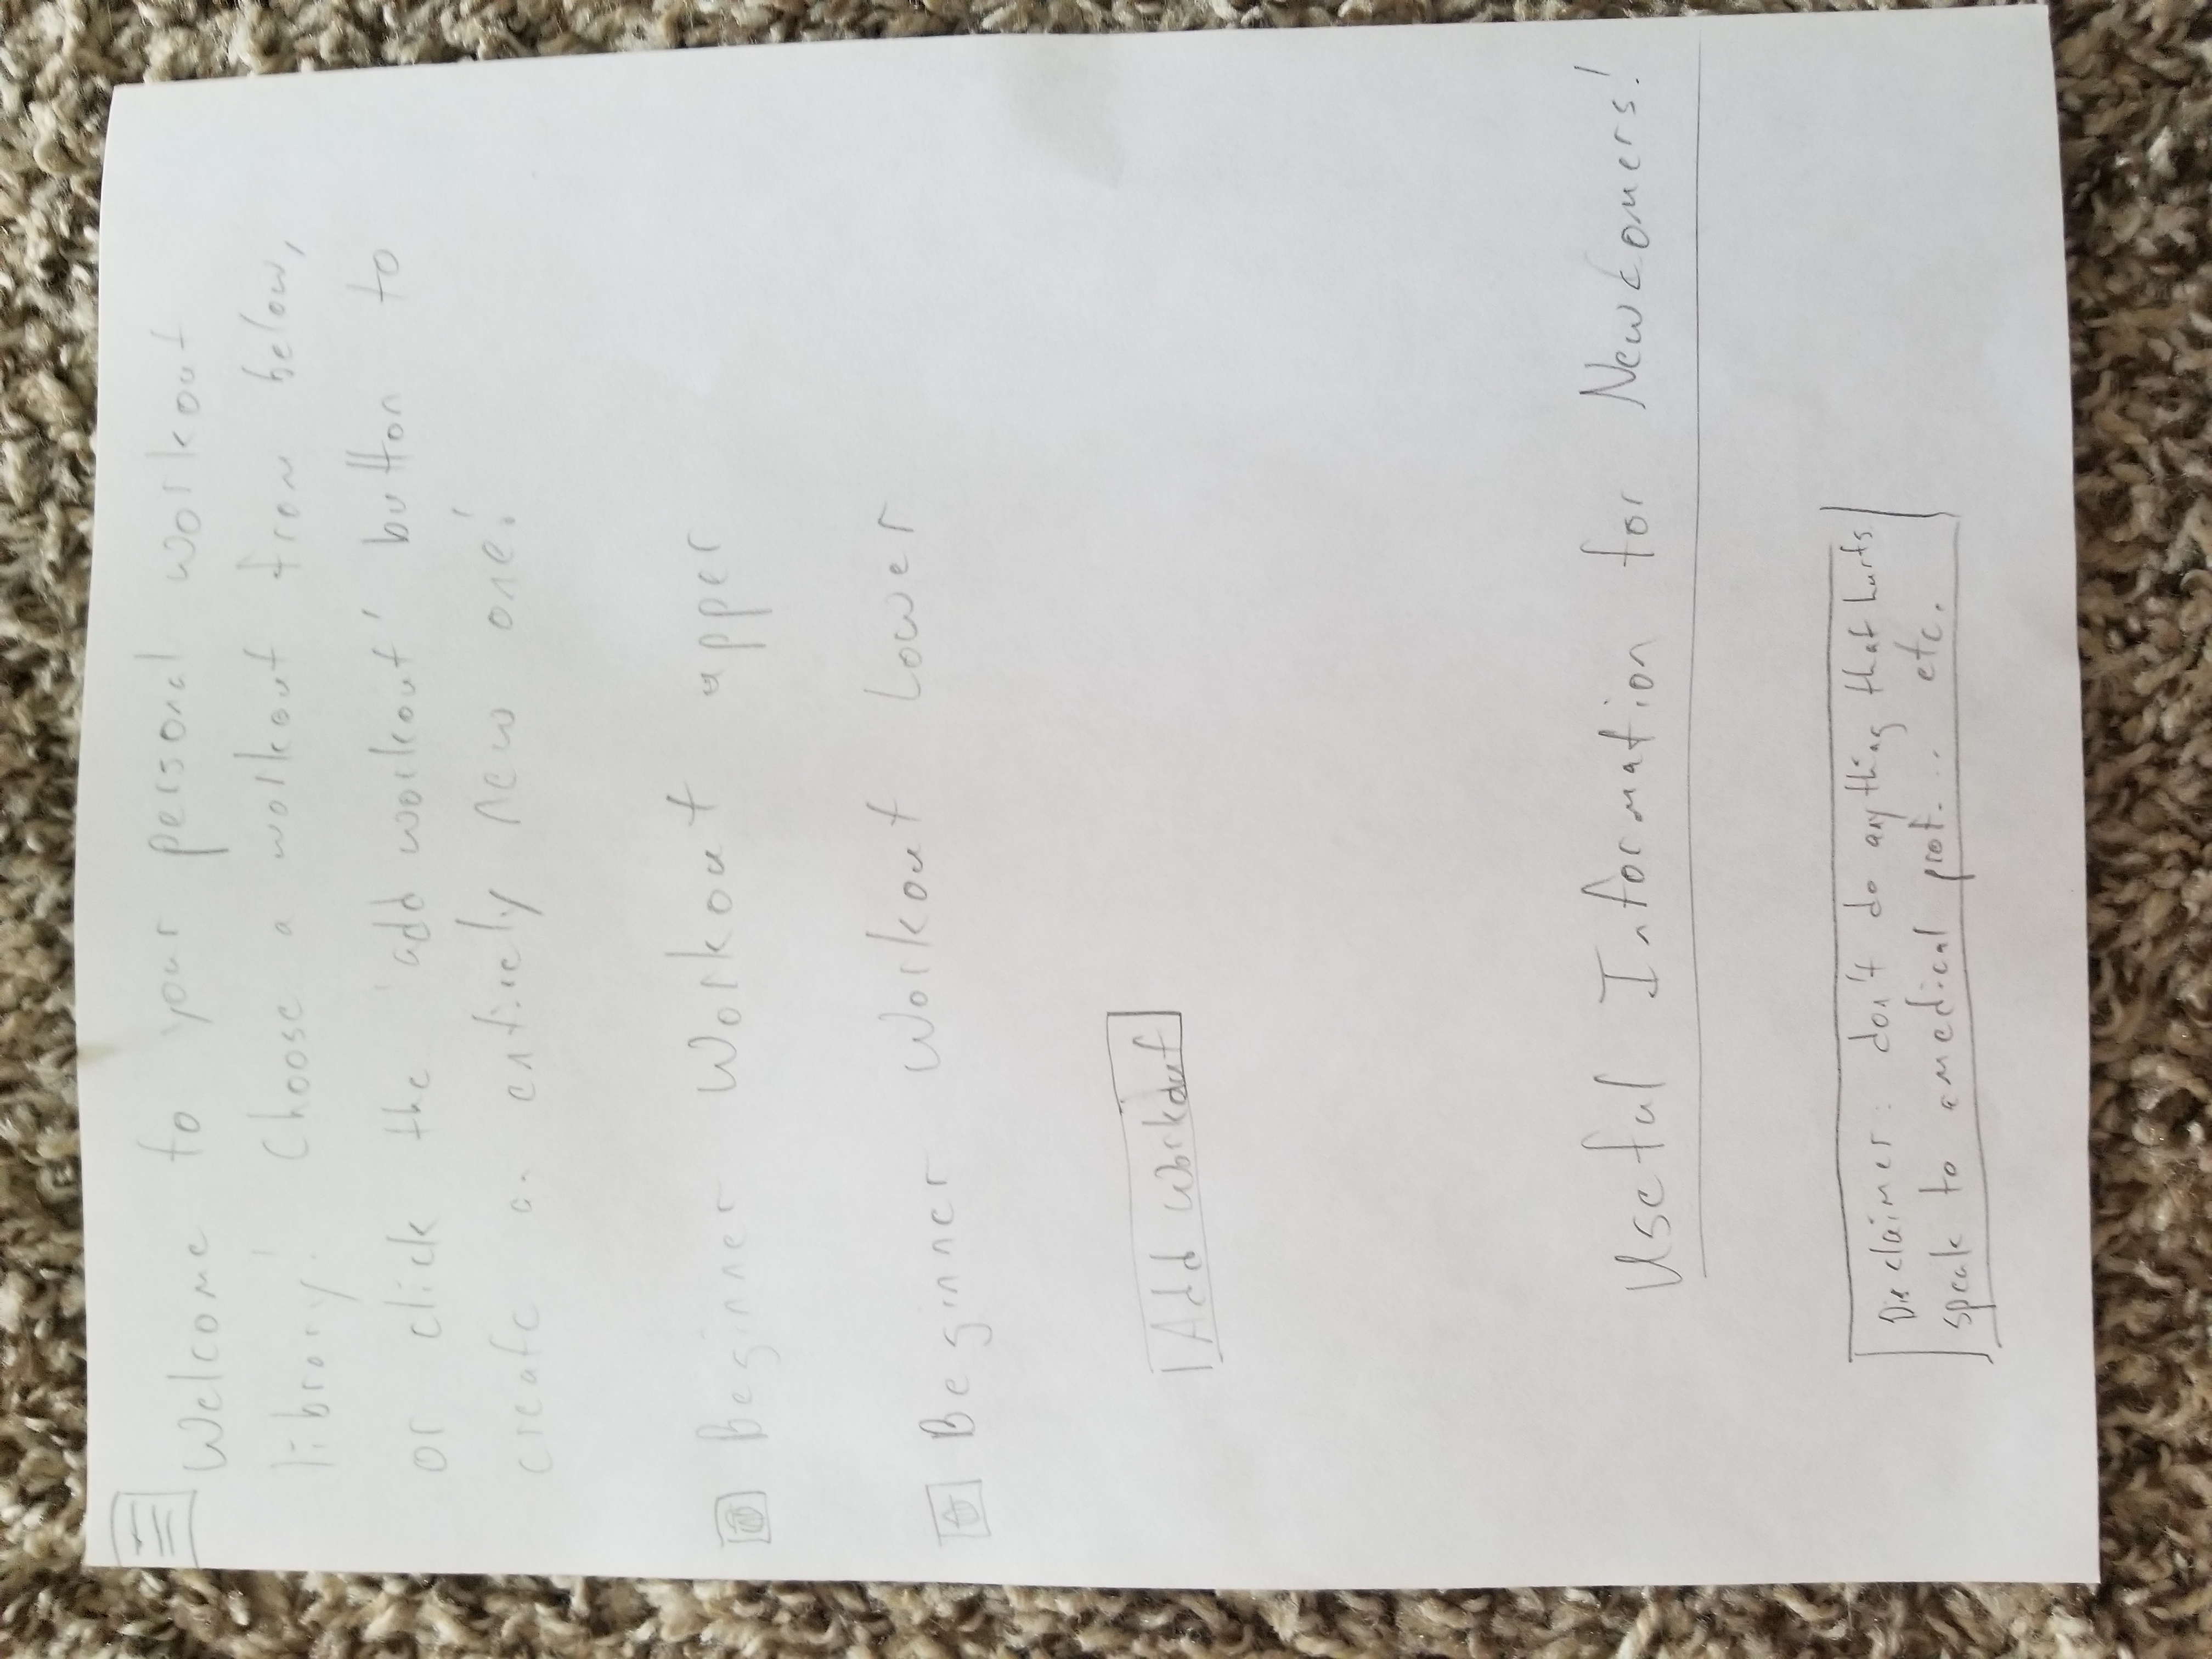 Welcome to your personal workout
library! Choose a workout from below,
or click the 'add workout' button to
create an entirely new one!
Beginner Workout upper
Beginner Workout Lower
Add Workout
Useful Information for Newcomers!
Disclaimer: don't do anything that hurts
speak to a medical prof... etc.